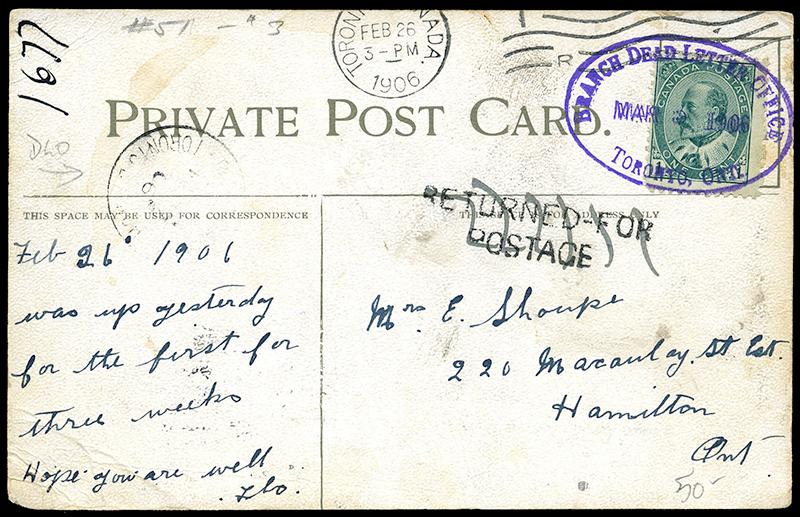 #51 - *3
1677
TORONTO CANADA
FEB 26
3-PM
1906
R
BRANCH DEAD LETTER OFFICE
MAR 1906
TORONTO, ONT.
CANADA POSTAGE
PRIVATE POST CARD.
DLO
TORONTO
THIS SPACE MAY BE USED FOR CORRESPONDENCE
RETURNED-FOR
POSTAGE
Feb 26 1906
was up yesterday
for the first for
three weeks
Hope you are well
Flo.
Mrs E. Shoupe
220 Macaulay. St Est.
Hamilton
Ont
50-